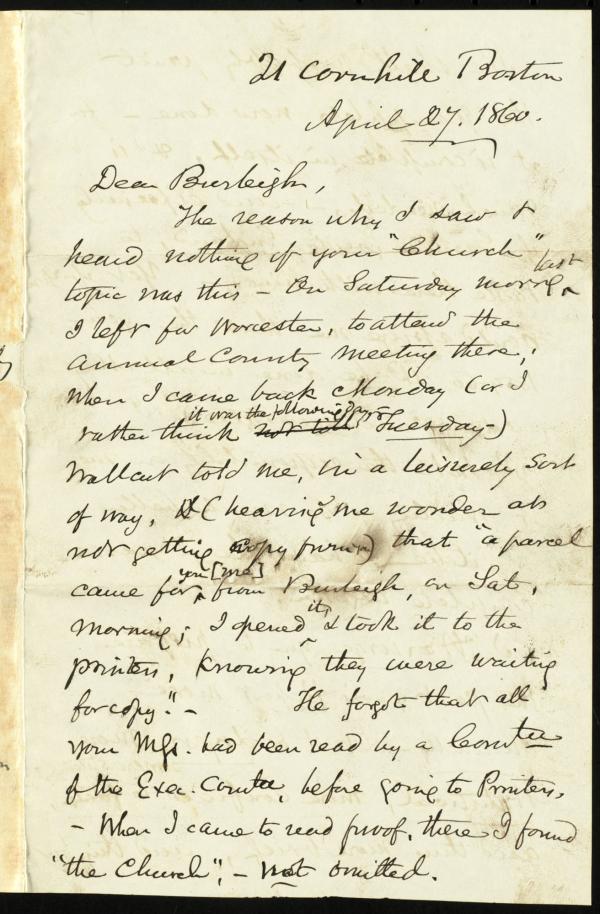 21 Cornhill Boston
April 27. 1860.
Dear Burleigh,
The reason why I saw &
heard nothing of your "Church"
topic was this – On Saturday morng last
I left for Worcester, to attend the
Annual County Meeting there;
When I came back Monday (or I
rather think it was the following day Tuesday–)
Wallcut told me, in a leisurely sort
of way, (hearing me wonder abt
not getting copy from) that "a parcel
came for you [me] from Burleigh, on Sat.
morning; I opened it & took it to the
printers, knowing they were waiting
for copy." – He forgot that all
your Mss. had been read by a Comtee
of the Exec. Comtee, before going to Printers.
– When I came to read proof, there I found
"the Church", – not omitted.